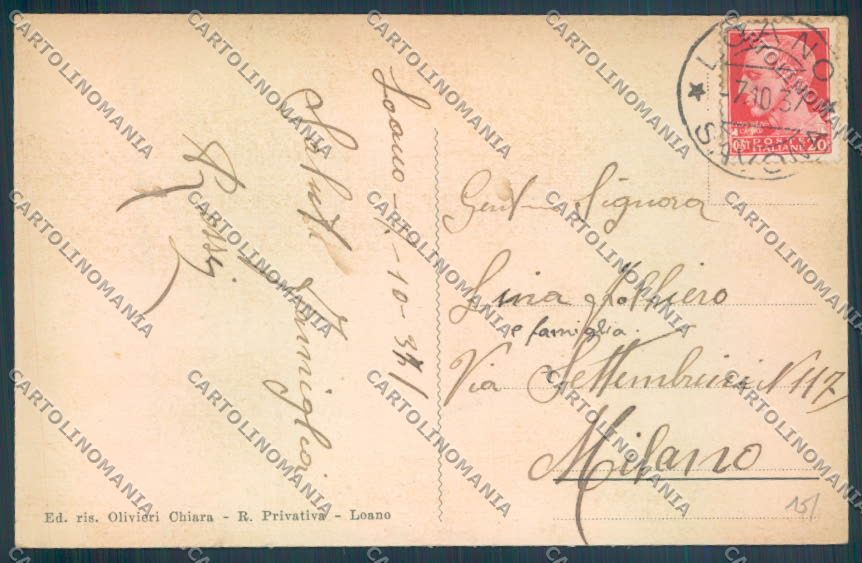 Loano - 7 - 10 - 37
Saluti Famiglia
Rossi
LOANO
7.10.37
SAVONA
POSTE
ITALIANE 20
Gent.ma Signora
Lina
e famiglia.
Via Settembrini N 117
Milano
15/
Ed. ris. Olivieri Chiara - R. Privativa - Loano
CARTOLINOMANIA